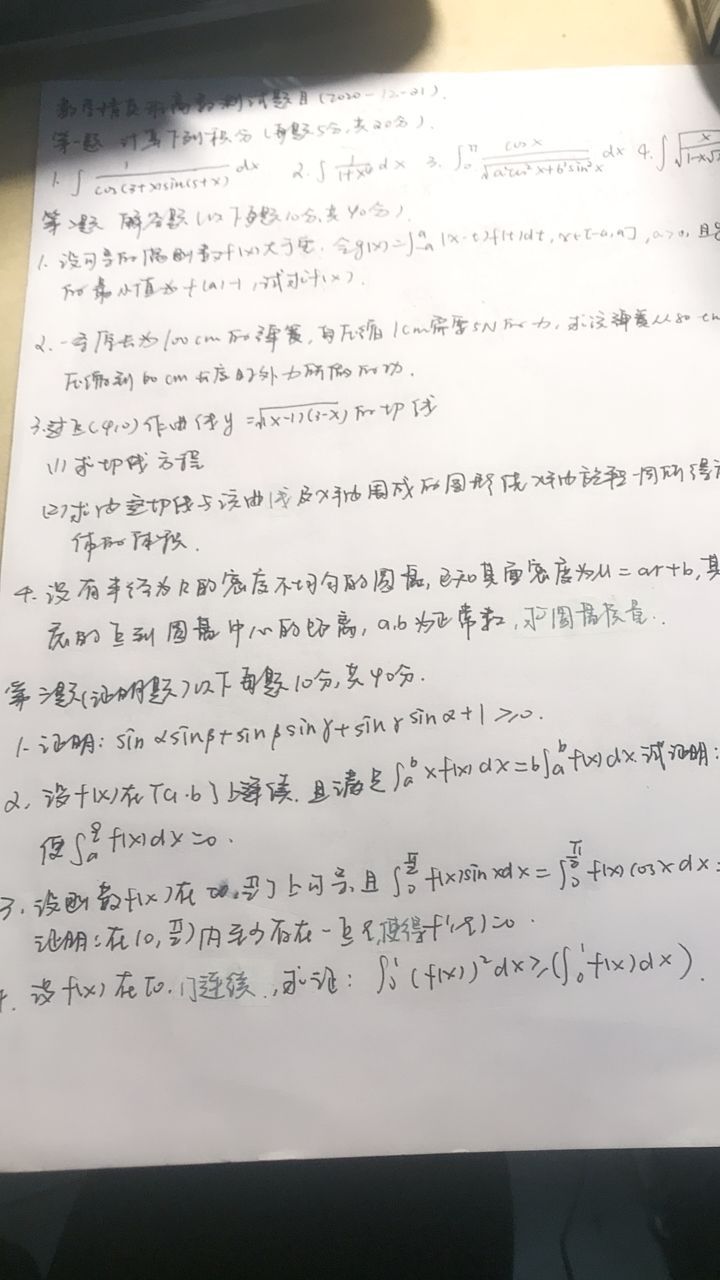 数学 高数测试题目(2020-12-21).
第一题 计算下列积分(每题5分,共20分).
1. ∫ 1/(cos(3+x)sin(5+x)) dx 2. ∫ 1/(1+x⁴) dx 3. ∫₀^π cosx/√(a²cos²x+b²sin²x) dx 4. ∫ √(x/(1-x√
第二题 解答题(以下每题10分,共40分).
1. 设可导的偶函数f(x)大于零. 令g(x)=∫₋ₐᵃ |x-t|f(t)dt, x∈[-a,a], a>0, 且
的最小值为f(a)-1, 试求f(x).
2. 一弹簧原长为100cm的弹簧, 每压缩1cm需要5N的力, 求该弹簧从80cm
压缩到60cm长度时外力所做的功.
3. 过点(4,0)作曲线y=√(x-1)(3-x)的切线
(1) 求切线方程
(2) 求由这切线与该曲线及x轴围成的图形绕x轴旋转一周所得
体的体积.
4. 设有半径为R的密度不均匀的圆盘, 已知其面密度为μ=ar+b, 其
的点到圆盘中心的距离, a,b为正常数, 求圆盘质量.
第三题(证明题)以下每题10分,共40分.
1. 证明: sinαsinβ+sinβsinγ+sinγsinα+1≥0.
2. 设f(x)在[a,b]上连续. 且满足∫ₐᵇ xf(x)dx=b∫ₐᵇ f(x)dx. 试证明:
使∫ₐ^ξ f(x)dx=0.
3. 设函数f(x)在[0,π/2]上可导,且∫₀^{π/2} f(x)sinxdx=∫₀^{π/2} f(x)cosxdx=
证明:在(0,π/2)内至少存在一点ξ,使得f'(ξ)=0.
设f(x)在[0,1]连续,求证: ∫₀¹(f(x))²dx≥(∫₀¹f(x)dx).